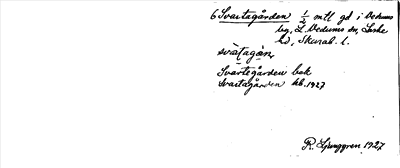 6 Svartagården 1/2 mtl gd i Vedums
by, L. Vedums sn, Laske
hd, Skarab. l.
svàt̩agàn̩
Svartegården bek
Svartagården kb. 1927
R. Ljunggren 1927